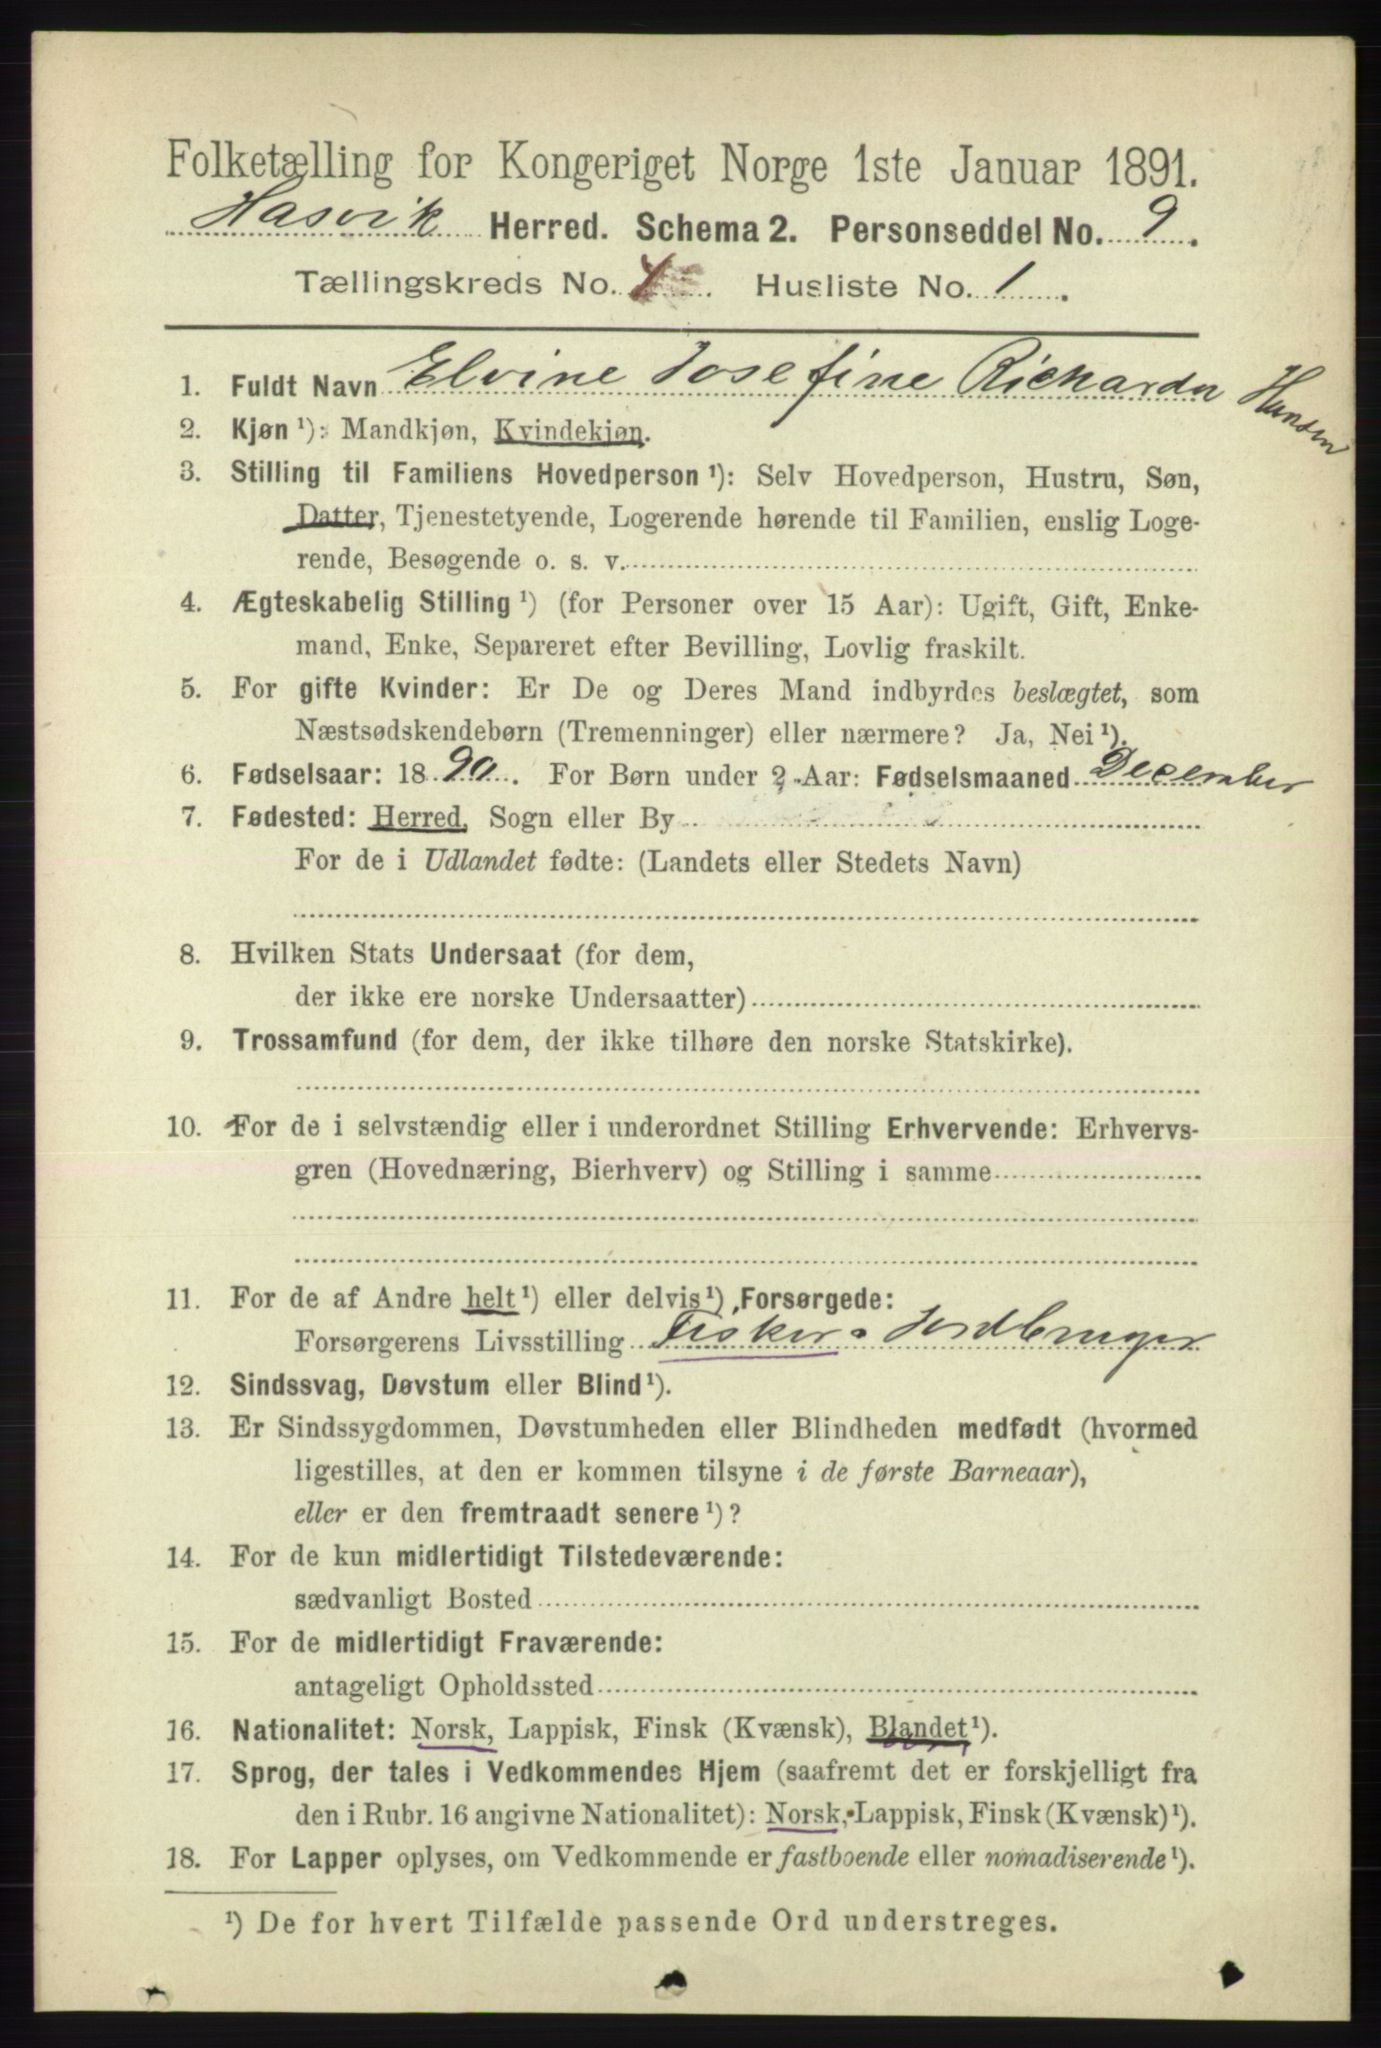 Folketælling for Kongeriget Norge 1ste Januar 1891.
Hasvik Herred. Schema 2. Personseddel No. 9.
Tællingskreds No. 4. Husliste No. 1.
1. Fuldt Navn Elvine Josefine Richarda Hansen
2. Kjøn ¹): Mandkjøn, Kvindekjøn.
3. Stilling til Familiens Hovedperson ¹): Selv Hovedperson, Hustru, Søn,
Datter, Tjenestetyende, Logerende hørende til Familien, enslig Loge-
rende, Besøgende o. s. v.
4. Ægteskabelig Stilling ¹) (for Personer over 15 Aar): Ugift, Gift, Enke-
mand, Enke, Separeret efter Bevilling, Lovlig fraskilt.
5. For gifte Kvinder: Er De og Deres Mand indbyrdes beslægtet, som
Næstsødskendebørn (Tremenninger) eller nærmere? Ja, Nei ¹).
6. Fødselsaar: 1890. For Børn under 2 Aar: Fødselsmaaned December
7. Fødested: Herred, Sogn eller By
For de i Udlandet fødte: (Landets eller Stedets Navn)
8. Hvilken Stats Undersaat (for dem,
der ikke ere norske Undersaatter)
9. Trossamfund (for dem, der ikke tilhøre den norske Statskirke).
10. For de i selvstændig eller i underordnet Stilling Erhvervende: Erhvervs-
gren (Hovednæring, Bierhverv) og Stilling i samme
11. For de af Andre helt ¹) eller delvis ¹) Forsørgede:
Forsørgerens Livsstilling Fisker o Jordbruger
12. Sindssvag, Døvstum eller Blind ¹).
13. Er Sindssygdommen, Døvstumheden eller Blindheden medfødt (hvormed
ligestilles, at den er kommen tilsyne i de første Barneaar),
eller er den fremtraadt senere ¹)?
14. For de kun midlertidigt Tilstedeværende:
sædvanligt Bosted
15. For de midlertidigt Fraværende:
antageligt Opholdssted
16. Nationalitet: Norsk, Lappisk, Finsk (Kvænsk), Blandet ¹).
17. Sprog, der tales i Vedkommendes Hjem (saafremt det er forskjelligt fra
den i Rubr. 16 angivne Nationalitet): Norsk, Lappisk, Finsk (Kvænsk) ¹).
18. For Lapper oplyses, om Vedkommende er fastboende eller nomadiserende ¹).
¹) De for hvert Tilfælde passende Ord understreges.